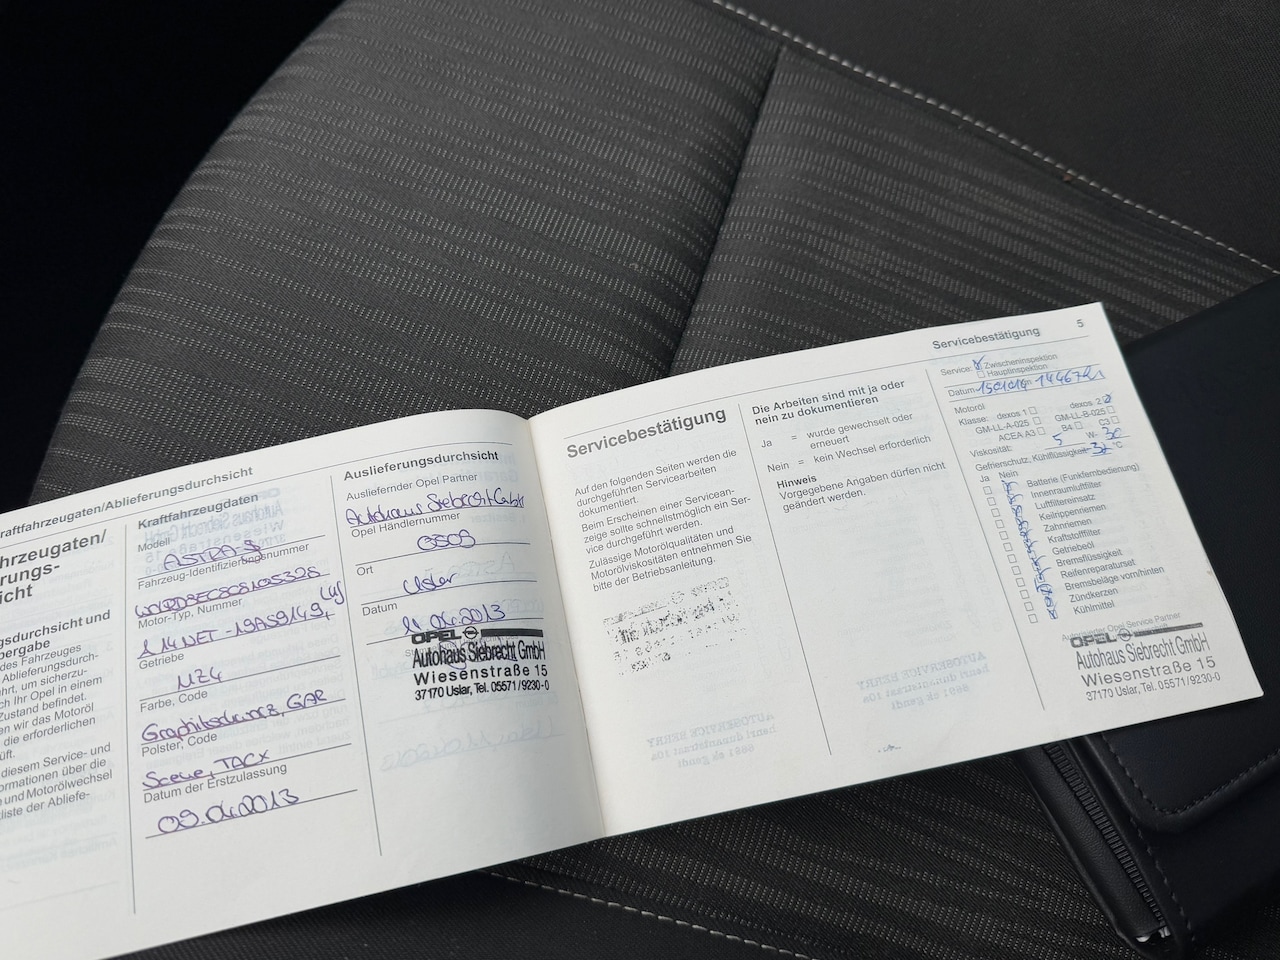 raftfahrzeugaten/Ablieferungsdurchsicht
hrzeugaten/
rungs-
icht
gsdurchsicht und
bergabe
des Fahrzeuges
Ablieferungsdurch-
hrt, um sicherzu-
ch Ihr Opel in einem
Zustand befindet.
en wir das Motoröl
die erforderlichen
üft.
diesem Service- und
ormationen über die
e und Motorölwechsel
liste der Abliefe-
Kraftfahrzeugdaten
Modell
ASTRA-J
Fahrzeug-Identifizierungsnummer
Motor-Typ, Nummer
Getriebe
MZ4
Farbe, Code
Graphitschwarz, GAR
Polster, Code
Scene, TACX
Datum der Erstzulassung
09.04.2013
Auslieferungsdurchsicht
Ausliefernder Opel Partner
Autohaus Siebrecht GmbH
Opel Händlernummer
Ort
Uslar
Datum
11.04.2013
OPEL
Autohaus Siebrecht GmbH
Wiesenstraße 15
37170 Uslar, Tel. 05571/9230-0
Servicebestätigung
Auf den folgenden Seiten werden die
durchgeführten Servicearbeiten
dokumentiert.
Beim Erscheinen einer Servicean-
zeige sollte schnellstmöglich ein Ser-
vice durchgeführt werden.
Zulässige Motorölqualitäten und
Motorölviskositäten entnehmen Sie
bitte der Betriebsanleitung.
Die Arbeiten sind mit ja oder
nein zu dokumentieren
Ja = wurde gewechselt oder
erneuert
Nein = kein Wechsel erforderlich
Hinweis
Vorgegebene Angaben dürfen nicht
geändert werden.
Servicebestätigung 5
Service: Zwischeninspektion
Hauptinspektion
Datum
Motoröl
Klasse: dexos 1 dexos 2
GM-LL-A-025 GM-LL-B-025
ACEA A3 B4 C3
Viskosität: 5 W- 30
Gefrierschutz, Kühlflüssigkeit °C
Ja Nein
Batterie (Funkfernbedienung)
Innenraumluftfilter
Luftfiltereinsatz
Keilrippenriemen
Zahnriemen
Kraftstofffilter
Getriebeöl
Bremsflüssigkeit
Reifenreparaturset
Bremsbeläge vorn/hinten
Zündkerzen
Kühlmittel
Ausführender Opel Service Partner
OPEL
Autohaus Siebrecht GmbH
Wiesenstraße 15
37170 Uslar, Tel. 05571/9230-0